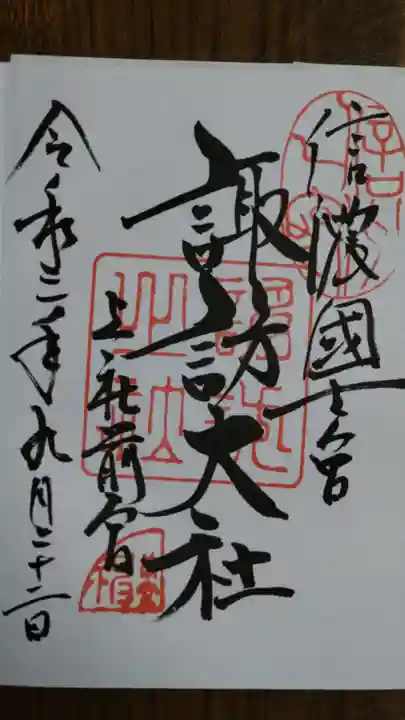 信濃國一宮
諏訪大社
上社前宮
令和二年九月二十二日